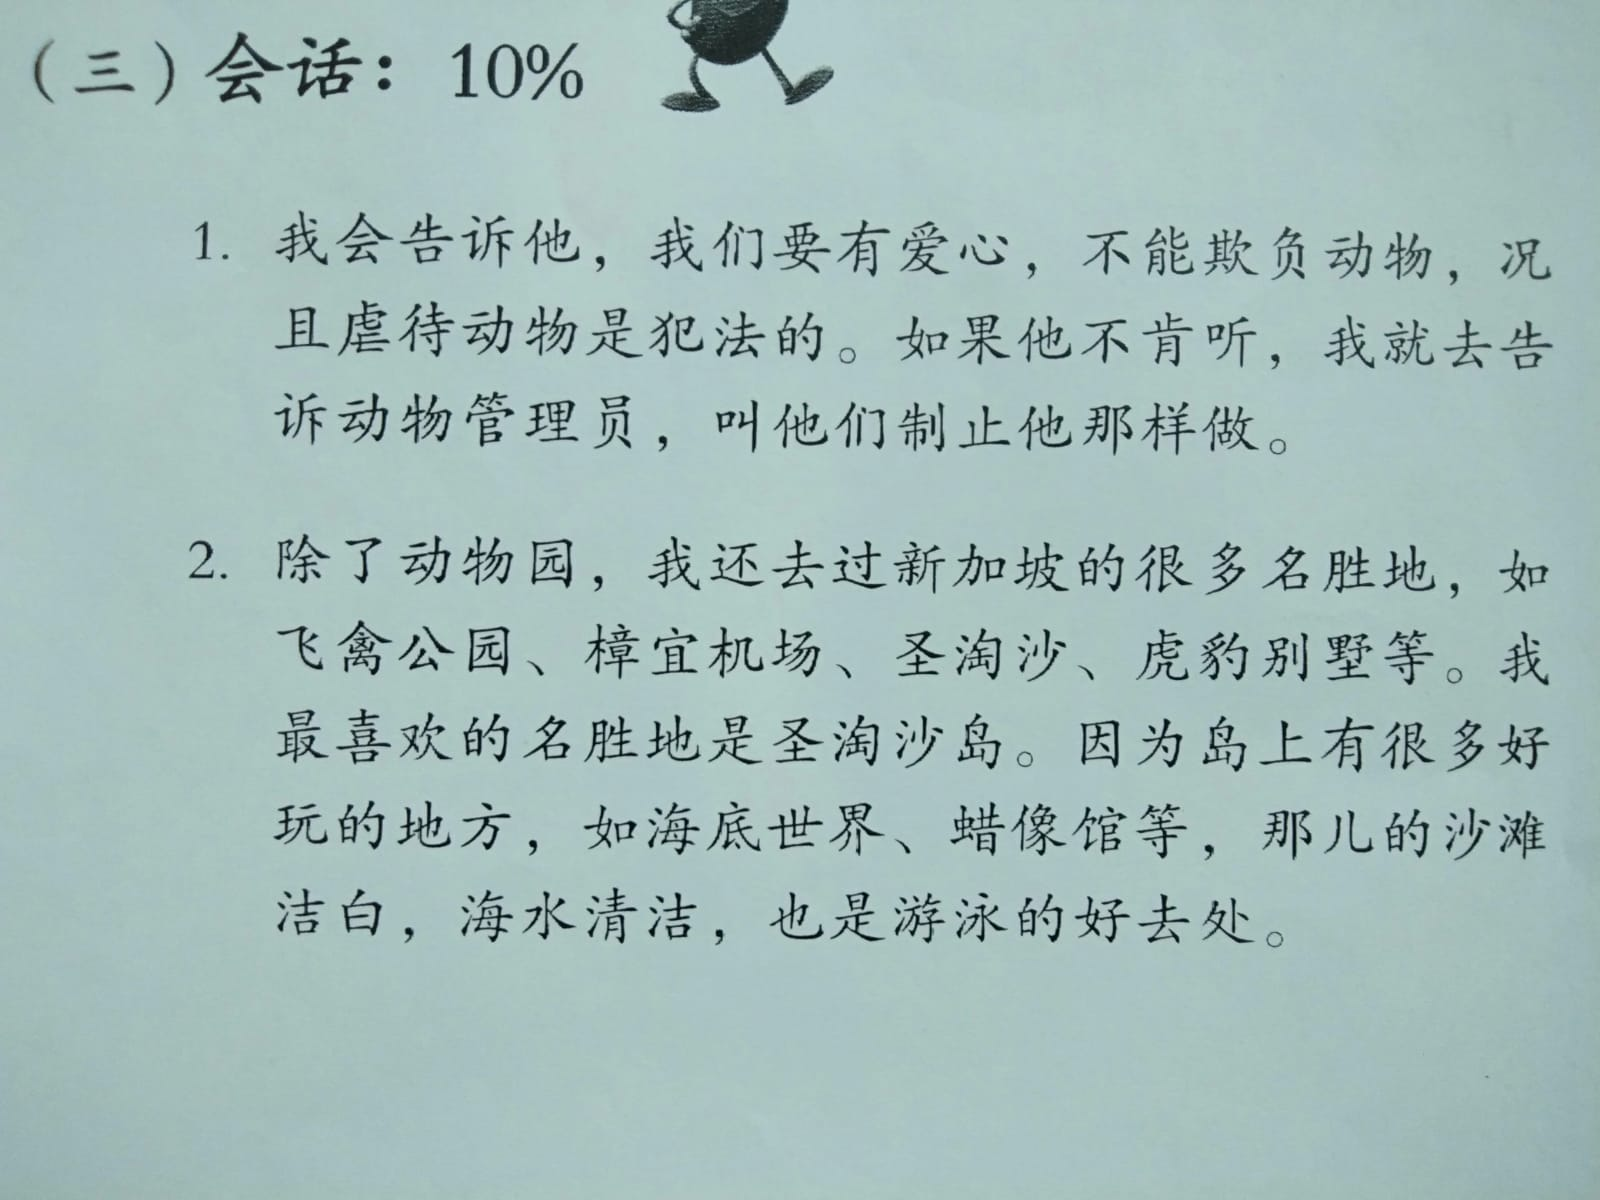 （三）会话：10%
1. 我会告诉他，我们要有爱心，不能欺负动物，况
且虐待动物是犯法的。如果他不肯听，我就去告
诉动物管理员，叫他们制止他那样做。
2. 除了动物园，我还去过新加坡的很多名胜地，如
飞禽公园、樟宜机场、圣淘沙、虎豹别墅等。我
最喜欢的名胜地是圣淘沙岛。因为岛上有很多好
玩的地方，如海底世界、蜡像馆等，那儿的沙滩
洁白，海水清洁，也是游泳的好去处。